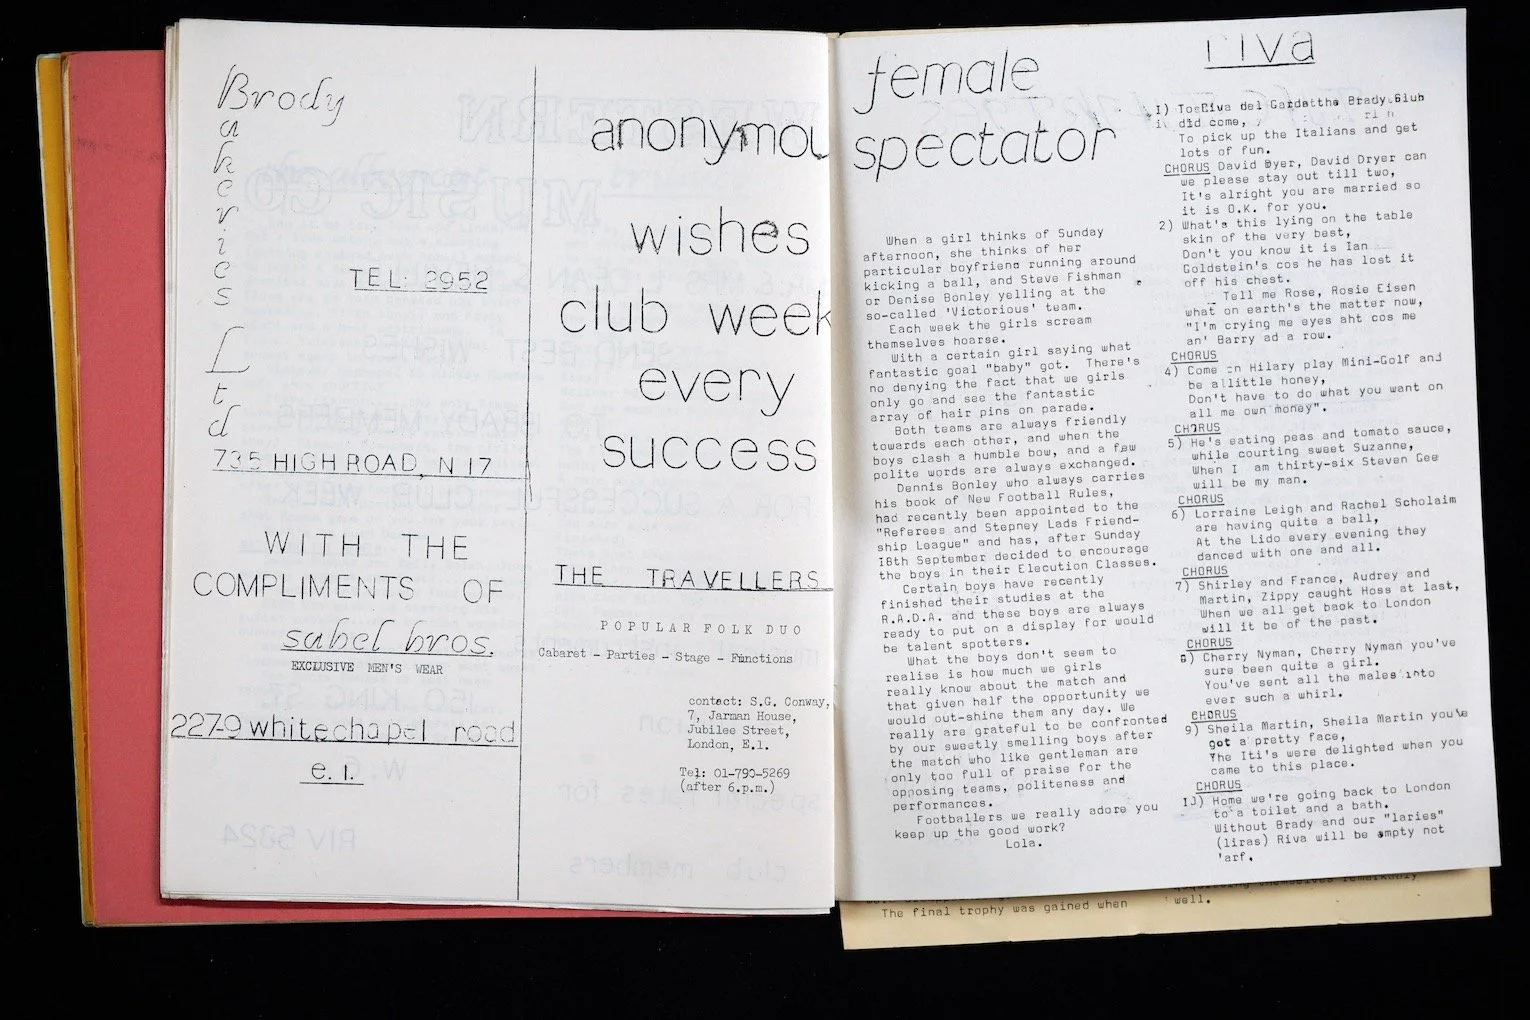 Brody
Bakeries
Ltd
TEL: 2952
735 HIGH ROAD, N 17
WITH THE
COMPLIMENTS OF
sabel bros.
EXCLUSIVE MEN'S WEAR
227-9 whitechapel road
e. 1.
anonymou
wishes
club week
every
success
THE TRAVELLERS
POPULAR FOLK DUO
Cabaret - Parties - Stage - Functions
contact: S.G. Conway,
7, Jarman House,
Jubilee Street,
London, E.1.
Tel: 01-790-5269
(after 6.p.m.)
female
spectator
When a girl thinks of Sunday
afternoon, she thinks of her
particular boyfriend running around
kicking a ball, and Steve Fishman
or Denise Bonley yelling at the
so-called 'Victorious' team.
Each week the girls scream
themselves hoarse.
With a certain girl saying what
fantastic goal "baby" got. There's
no denying the fact that we girls
only go and see the fantastic
array of hair pins on parade.
Both teams are always friendly
towards each other, and when the
boys clash a humble bow, and a few
polite words are always exchanged.
Dennis Bonley who always carries
his book of New Football Rules,
had recently been appointed to the
"Referees and Stepney Lads Friend-
ship League" and has, after Sunday
18th September decided to encourage
the boys in their Elecution Classes.
Certain boys have recently
finished their studies at the
R.A.D.A. and these boys are always
ready to put on a display for would
be talent spotters.
What the boys don't seem to
realise is how much we girls
really know about the match and
that given half the opportunity we
would out-shine them any day. We
really are grateful to be confronted
by our sweetly smelling boys after
the match who like gentleman are
only too full of praise for the
opposing teams, politeness and
performances.
Footballers we really adore you
keep up the good work?
Lola.
riva
1) To Riva del Garda the Brady Club
did come,
To pick up the Italians and get
lots of fun.
CHORUS David Dyer, David Dryer can
we please stay out till two,
It's alright you are married so
it is O.K. for you.
2) What's this lying on the table
skin of the very best,
Don't you know it is Ian
Goldstein's cos he has lost it
off his chest.
Tell me Rose, Rosie Eisen
what on earth's the matter now,
"I'm crying me eyes aht cos me
an' Barry ad a row.
CHORUS
4) Come on Hilary play Mini-Golf and
be allittle honey,
Don't have to do what you want on
all me own money".
CHORUS
5) He's eating peas and tomato sauce,
while courting sweet Suzanne,
When I am thirty-six Steven Gee
will be my man.
CHORUS
6) Lorraine Leigh and Rachel Scholaim
are having quite a ball,
At the Lido every evening they
danced with one and all.
CHORUS
7) Shirley and France, Audrey and
Martin, Zippy caught Hoss at last,
When we all get back to London
will it be of the past.
CHORUS
8) Cherry Nyman, Cherry Nyman you've
sure been quite a girl.
You've sent all the males into
ever such a whirl.
CHORUS
9) Sheila Martin, Sheila Martin you've
got a pretty face,
The Iti's were delighted when you
came to this place.
CHORUS
10) Home we're going back to London
to a toilet and a bath.
Without Brady and our "laries"
(liras) Riva will be empty not
'arf.
The final trophy was gained when
themselves remarkably
well.